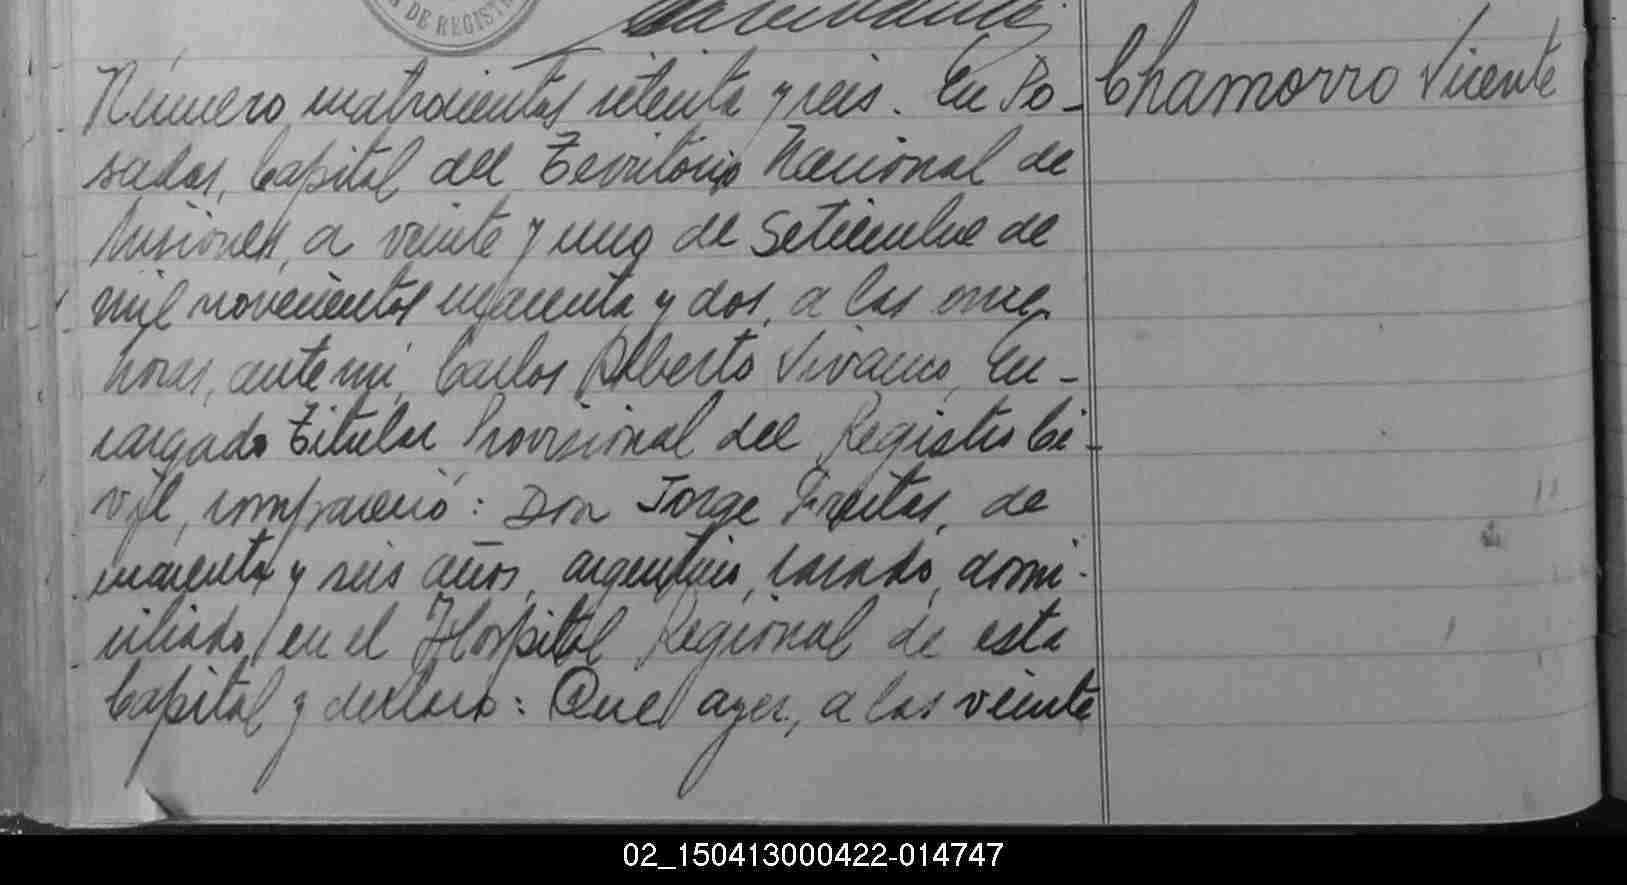 DE REGISTR
Número cuatrocientos setenta y seis. En Po-
Chamorro Vicente
sadas, Capital del Territorio Nacional de
Misiones, a veinte y uno de Setiembre de
mil novecientos cuarenta y dos, a las once
horas, ante mi, Carlos Alberto Vivanco, En-
cargado Titular Provisional del Registro Ci-
vil, compareció: Don Jorge Freitas, de
cuarenta y seis años, argentino, casado, domi-
ciliado en el Hospital Regional de esta
Capital y declaro: Que ayer, a las veinte
02_150413000422-014747